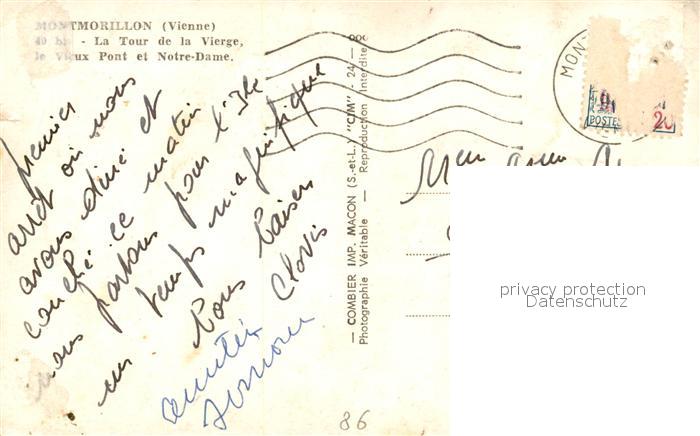 MONTMORILLON (Vienne)
40 bis - La Tour de la Vierge,
le Vieux Pont et Notre-Dame.
premier
arrêt où nous
avons diné et
couché ce matin
nous partons pour l'Ile
temps magnifique
Bons baisers
Clovis
— COMBIER IMP. MACON (S.-et-L.) "CIM" 24
Photographie Véritable - Reproduction Interdite
MON
POSTE
privacy protection
Datenschutz
86